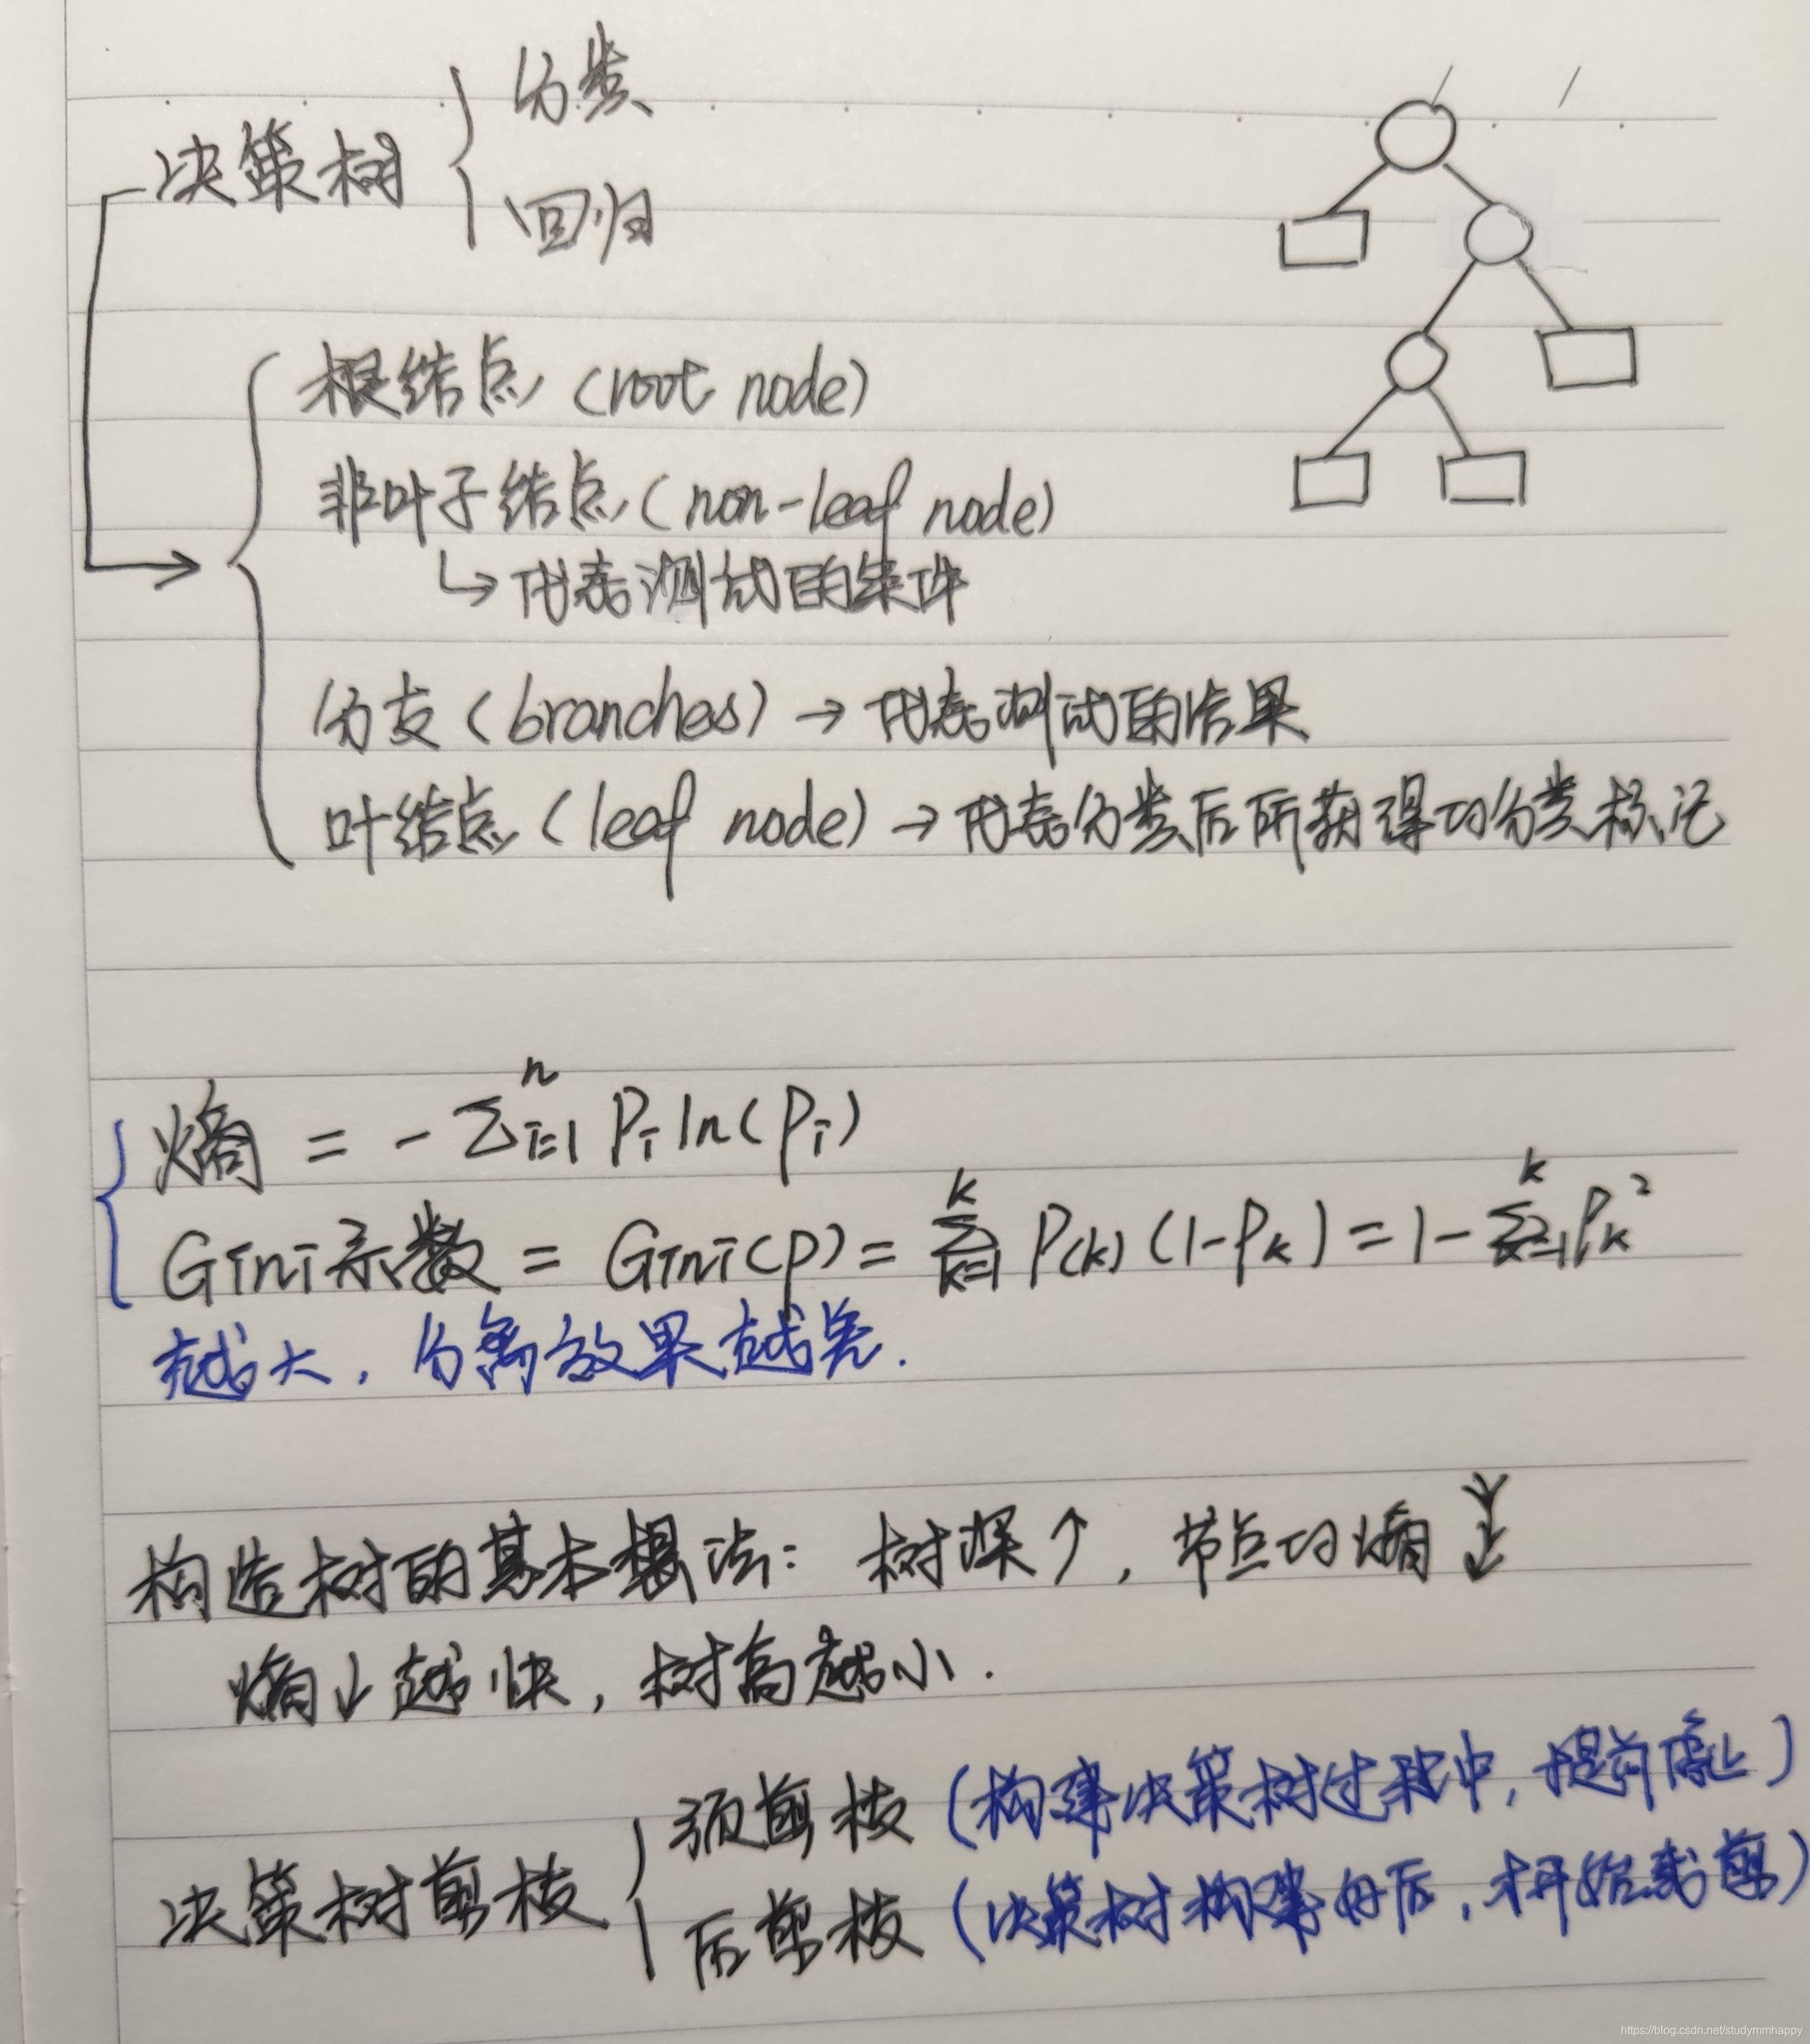 分类
决策树
回归
根结点 (root node)
非叶子结点 (non-leaf node)
↳ 代表测试的条件
分支 (branches) → 代表测试的结果
叶结点 (leaf node) → 代表分类后所获得的分类标记
熵 = -Σⁿᵢ₌₁ Pᵢ ln(Pᵢ)
Gini系数 = Gini(p) = Σᵏₖ₌₁ P(k) (1-Pₖ) = 1 - Σᵏₖ₌₁ Pₖ²
越大, 分离效果越差.
构造树的基本想法: 树深↑, 节点的熵↓
熵↓越快, 树高越小.
预剪枝 (构建决策树过程中, 提前停止)
决策树剪枝
后剪枝 (决策树构建好后, 才开始裁剪)
https://blog.csdn.net/studymmhappy